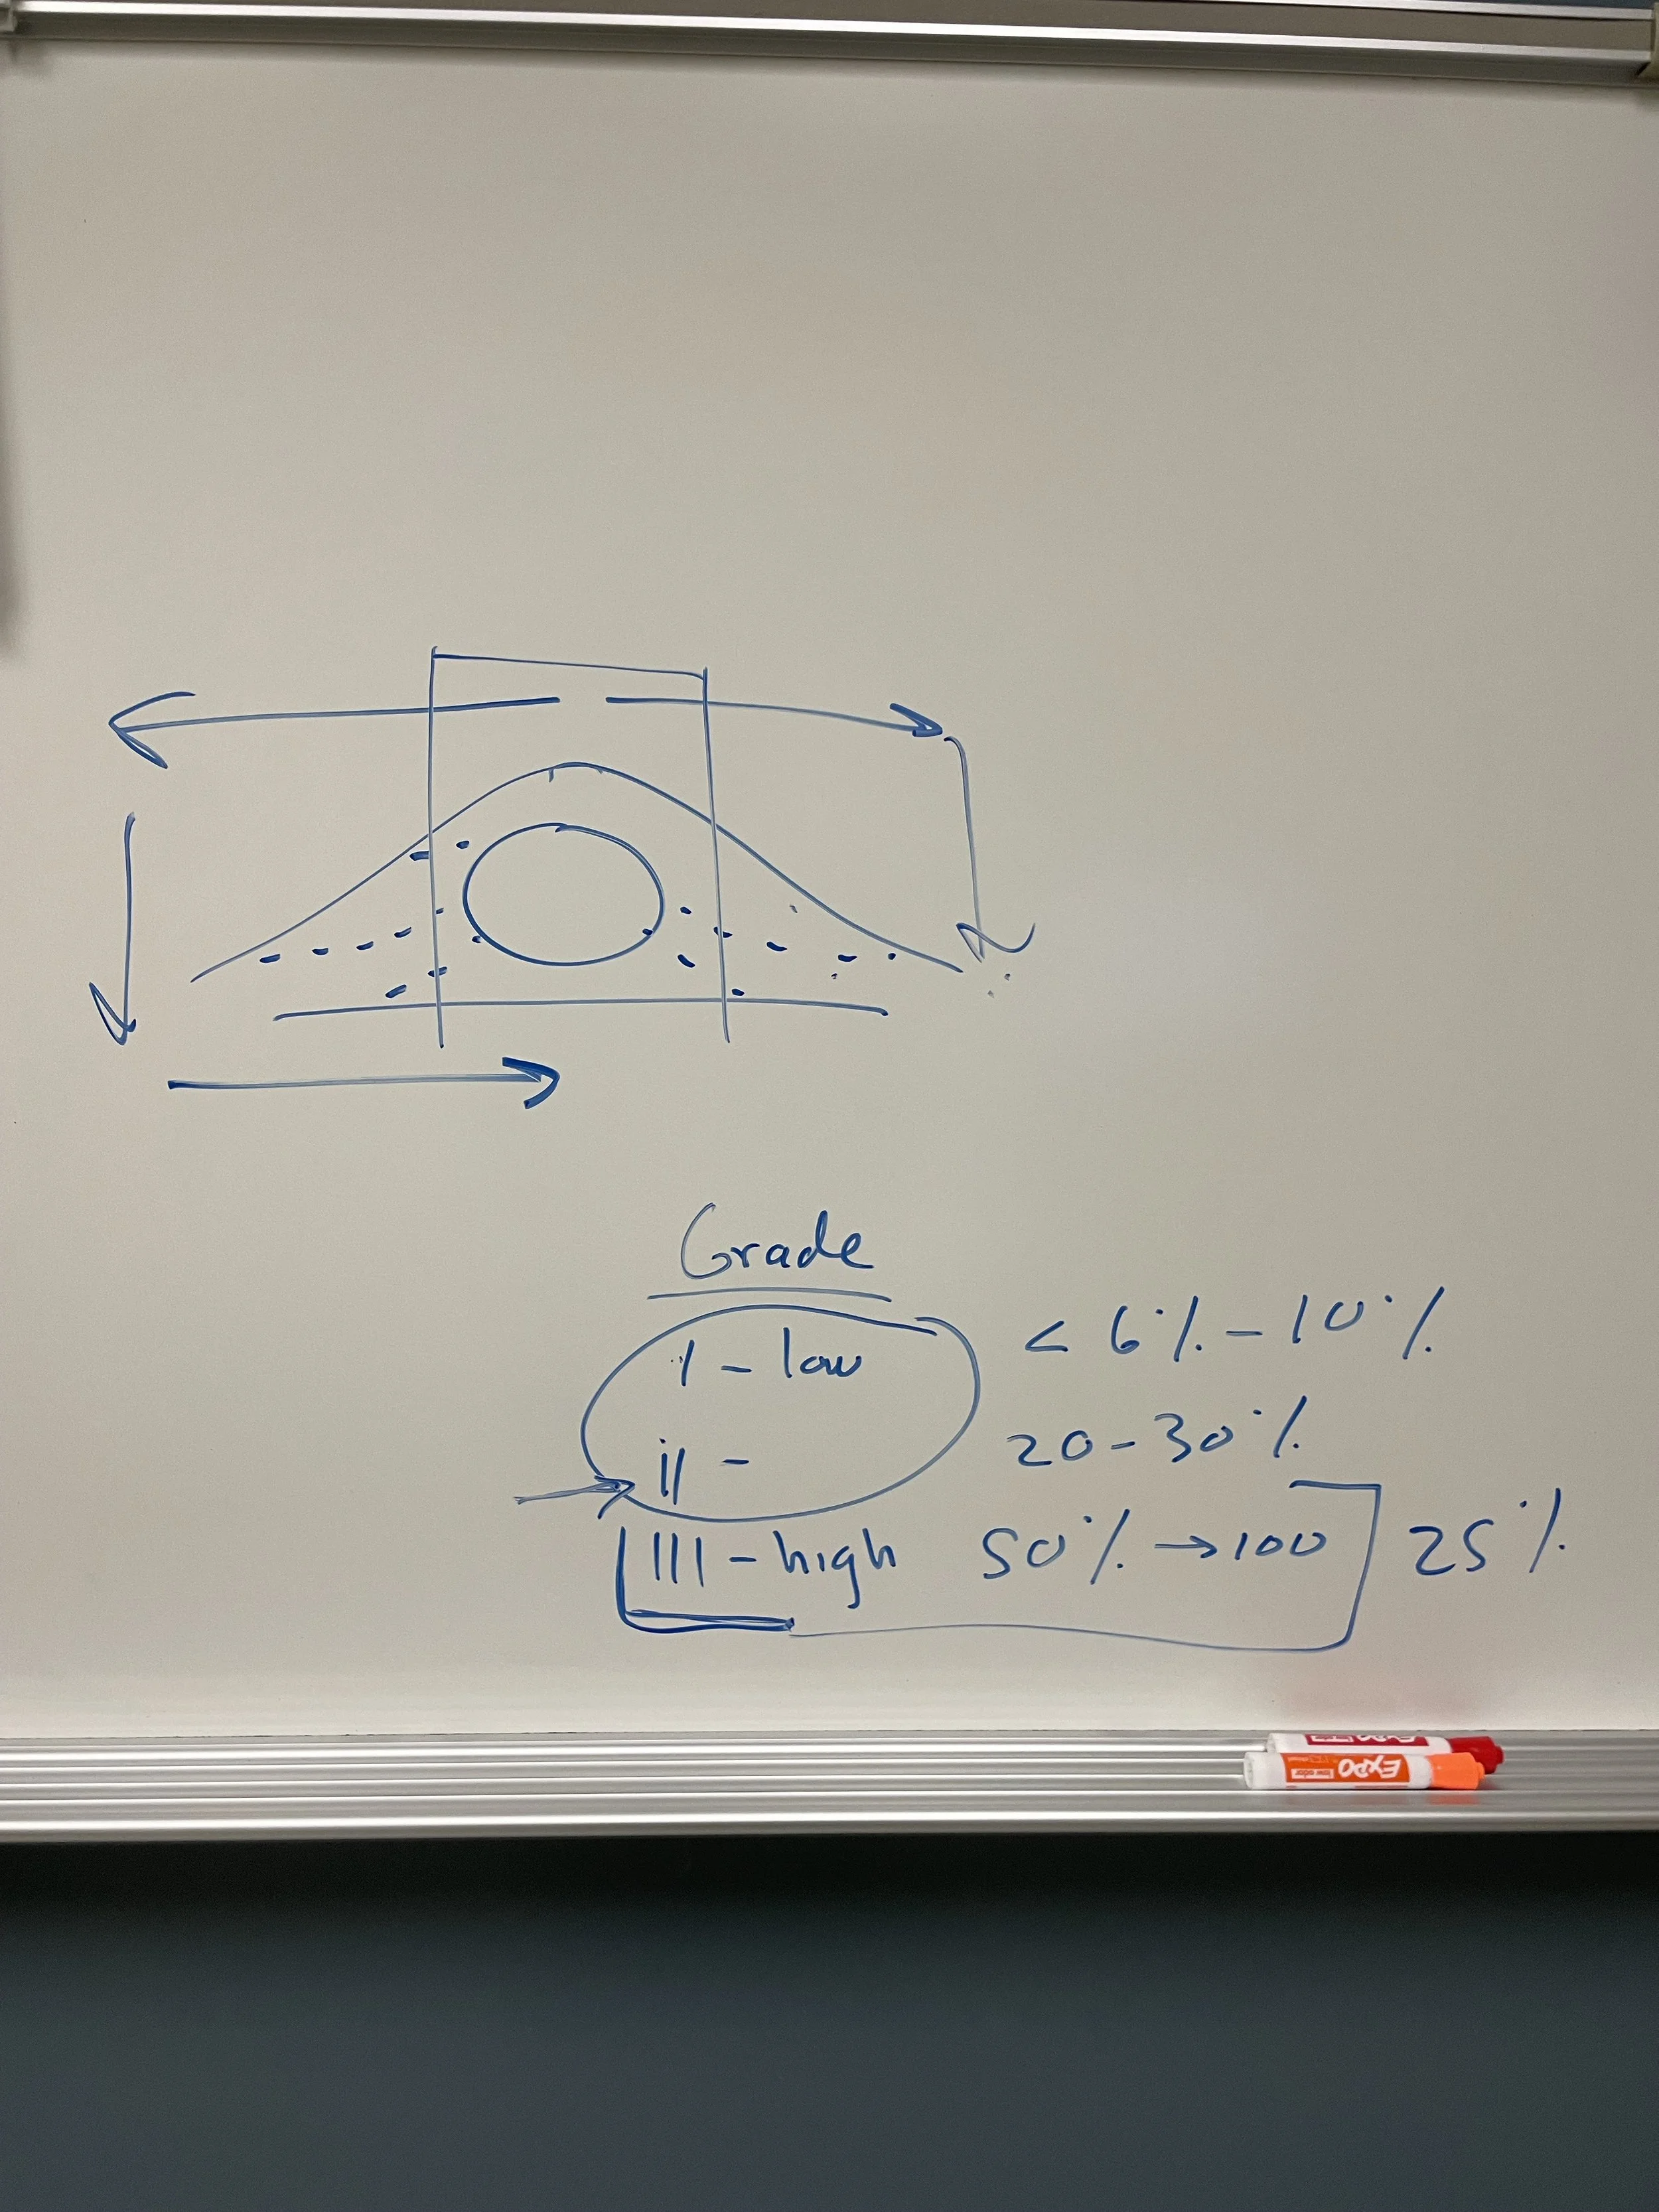 Grade
I - low < 6% - 10%
II - 20 - 30%
III - high 50% → 100 25%
EXPO
EXPO low odor